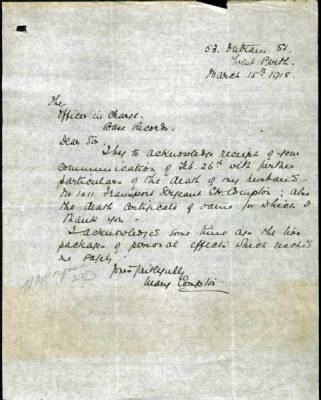 53. Outram St.
West Perth.
March 15th 1918.
The
Officer in Charge.
Base Records.
Dear Sir
I beg to acknowledge receipt of your
communication of Feb. 26th with further
particulars of the death of my husband
No 1011. Transport Sergeant C.H. Compton; also
the death certificate of same for which I
thank you -
I acknowledged some time ago the two
packages of personal effects which reached
me safely
Yours faithfully
Mary Compton